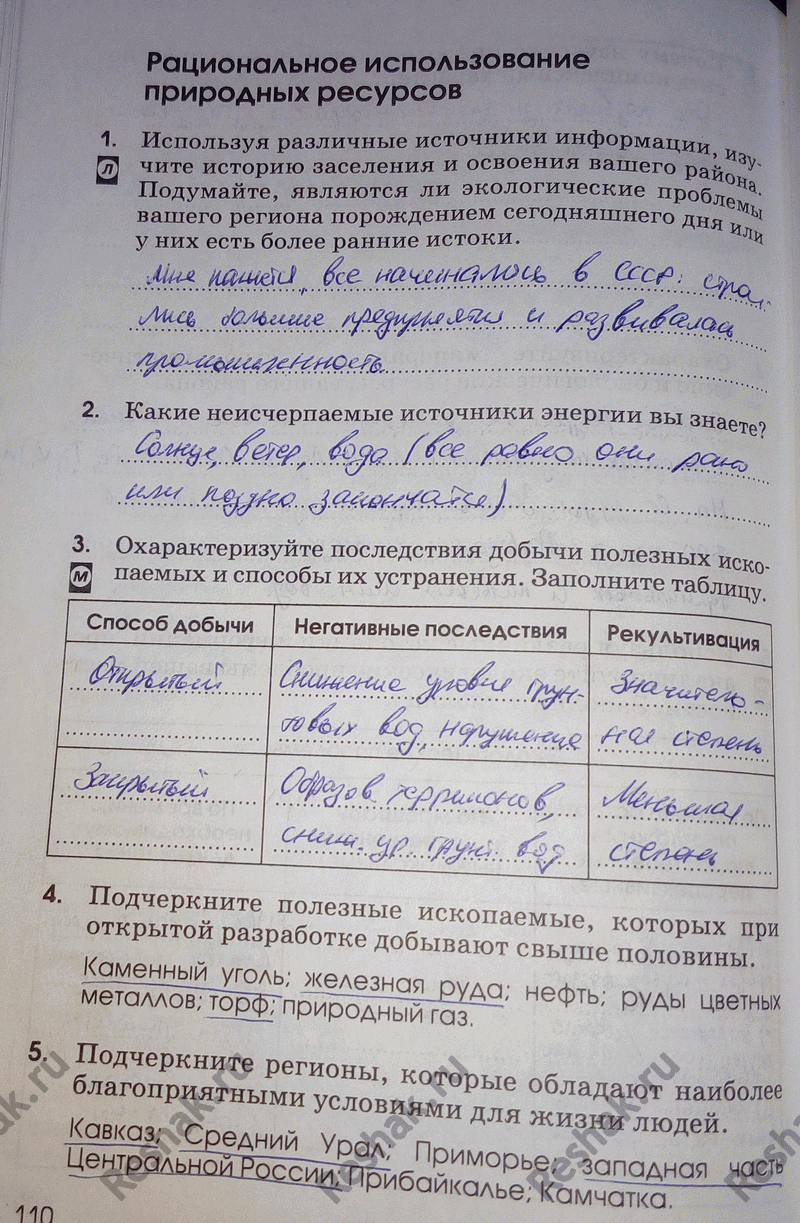 Рациональное использование
природных ресурсов
1. Используя различные источники информации, изу-
Л чите историю заселения и освоения вашего района.
Подумайте, являются ли экологические проблемы
вашего региона порождением сегодняшнего дня или
у них есть более ранние истоки.
Мне кажется, все начиналось в СССР: строи
лись большие предприятия и развивалась
промышленность
2. Какие неисчерпаемые источники энергии вы знаете?
Солнце, ветер, вода (все равно они рано
или поздно закончатся)
3. Охарактеризуйте последствия добычи полезных иско-
М паемых и способы их устранения. Заполните таблицу.
Способ добычи Негативные последствия Рекультивация
Открытый Снижение уровня грун- Значитель-
товых вод, нарушение ная степень
Закрытый Образов. терриконов, Меньшая
сниж. ур. грунт. вод степень
4. Подчеркните полезные ископаемые, которых при
открытой разработке добывают свыше половины.
Каменный уголь; железная руда; нефть; руды цветных
металлов; торф; природный газ.
5. Подчеркните регионы, которые обладают наиболее
благоприятными условиями для жизни людей.
Кавказ; Средний Урал; Приморье; западная часть
Центральной России; Прибайкалье; Камчатка.
110
Reshak.ru
Reshak.ru
Reshak.ru